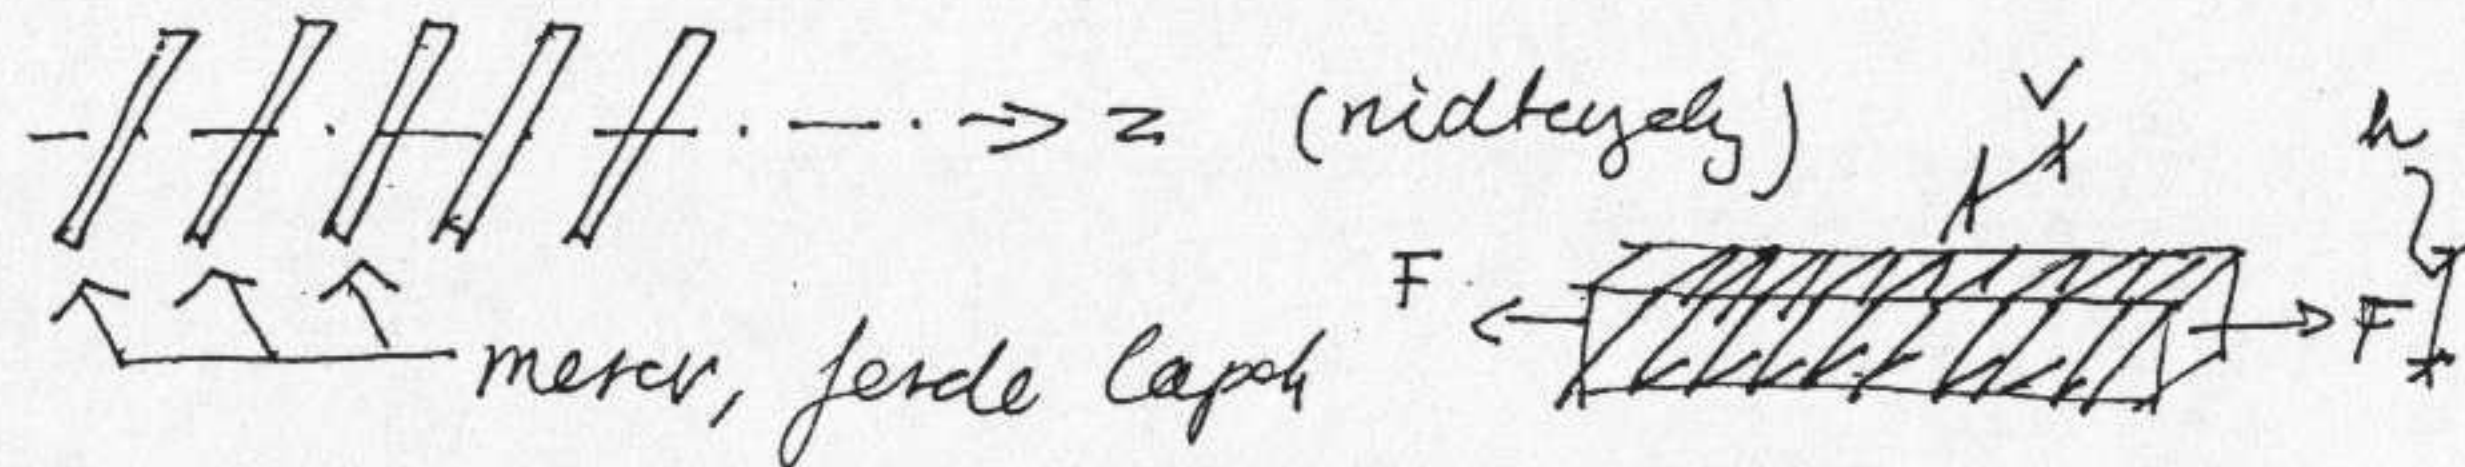 z (rúdtengely)
v
h
F
F
merev, ferde lapok